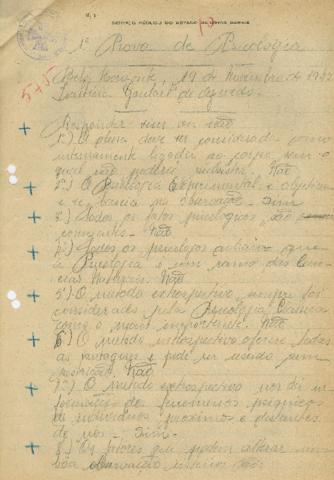 SERVIÇO PÚBLICO DO ESTADO DE MINAS GERAIS
1ª Prova de Psicologia
5+5
Belo Horizonte, 19 de Novembro de
de Azevedo.
Responder sim ou não
1º) O alma deve ser considerada como
intensamente ligada ao corpo, sem o
qual não poderia subsistir. Não
2º) O Psicologia Experimental é objetiva
e se baseia na observação. Sim
3º) Todos os fatos psicologicos são
conscientes. Não
4º) Todos os psicologos que a
Psicologia é um ramo das Cien-
cias Naturais. Não
5º) O metodo extrospectivo sempre foi
considerado pela Psicologia Classica
como o mais importante. Não
6º) O metodo introspectivo oferece todas
as vantagens e pode ser usado sem
restrições. Não
7º) O metodo extrospectivo nos dá in-
formações dos fenomenos psiquicos
de individuos proximos e distantes
de nós. Sim.
8º) Os fatores que podem alterar uma
bôa observação interior são: